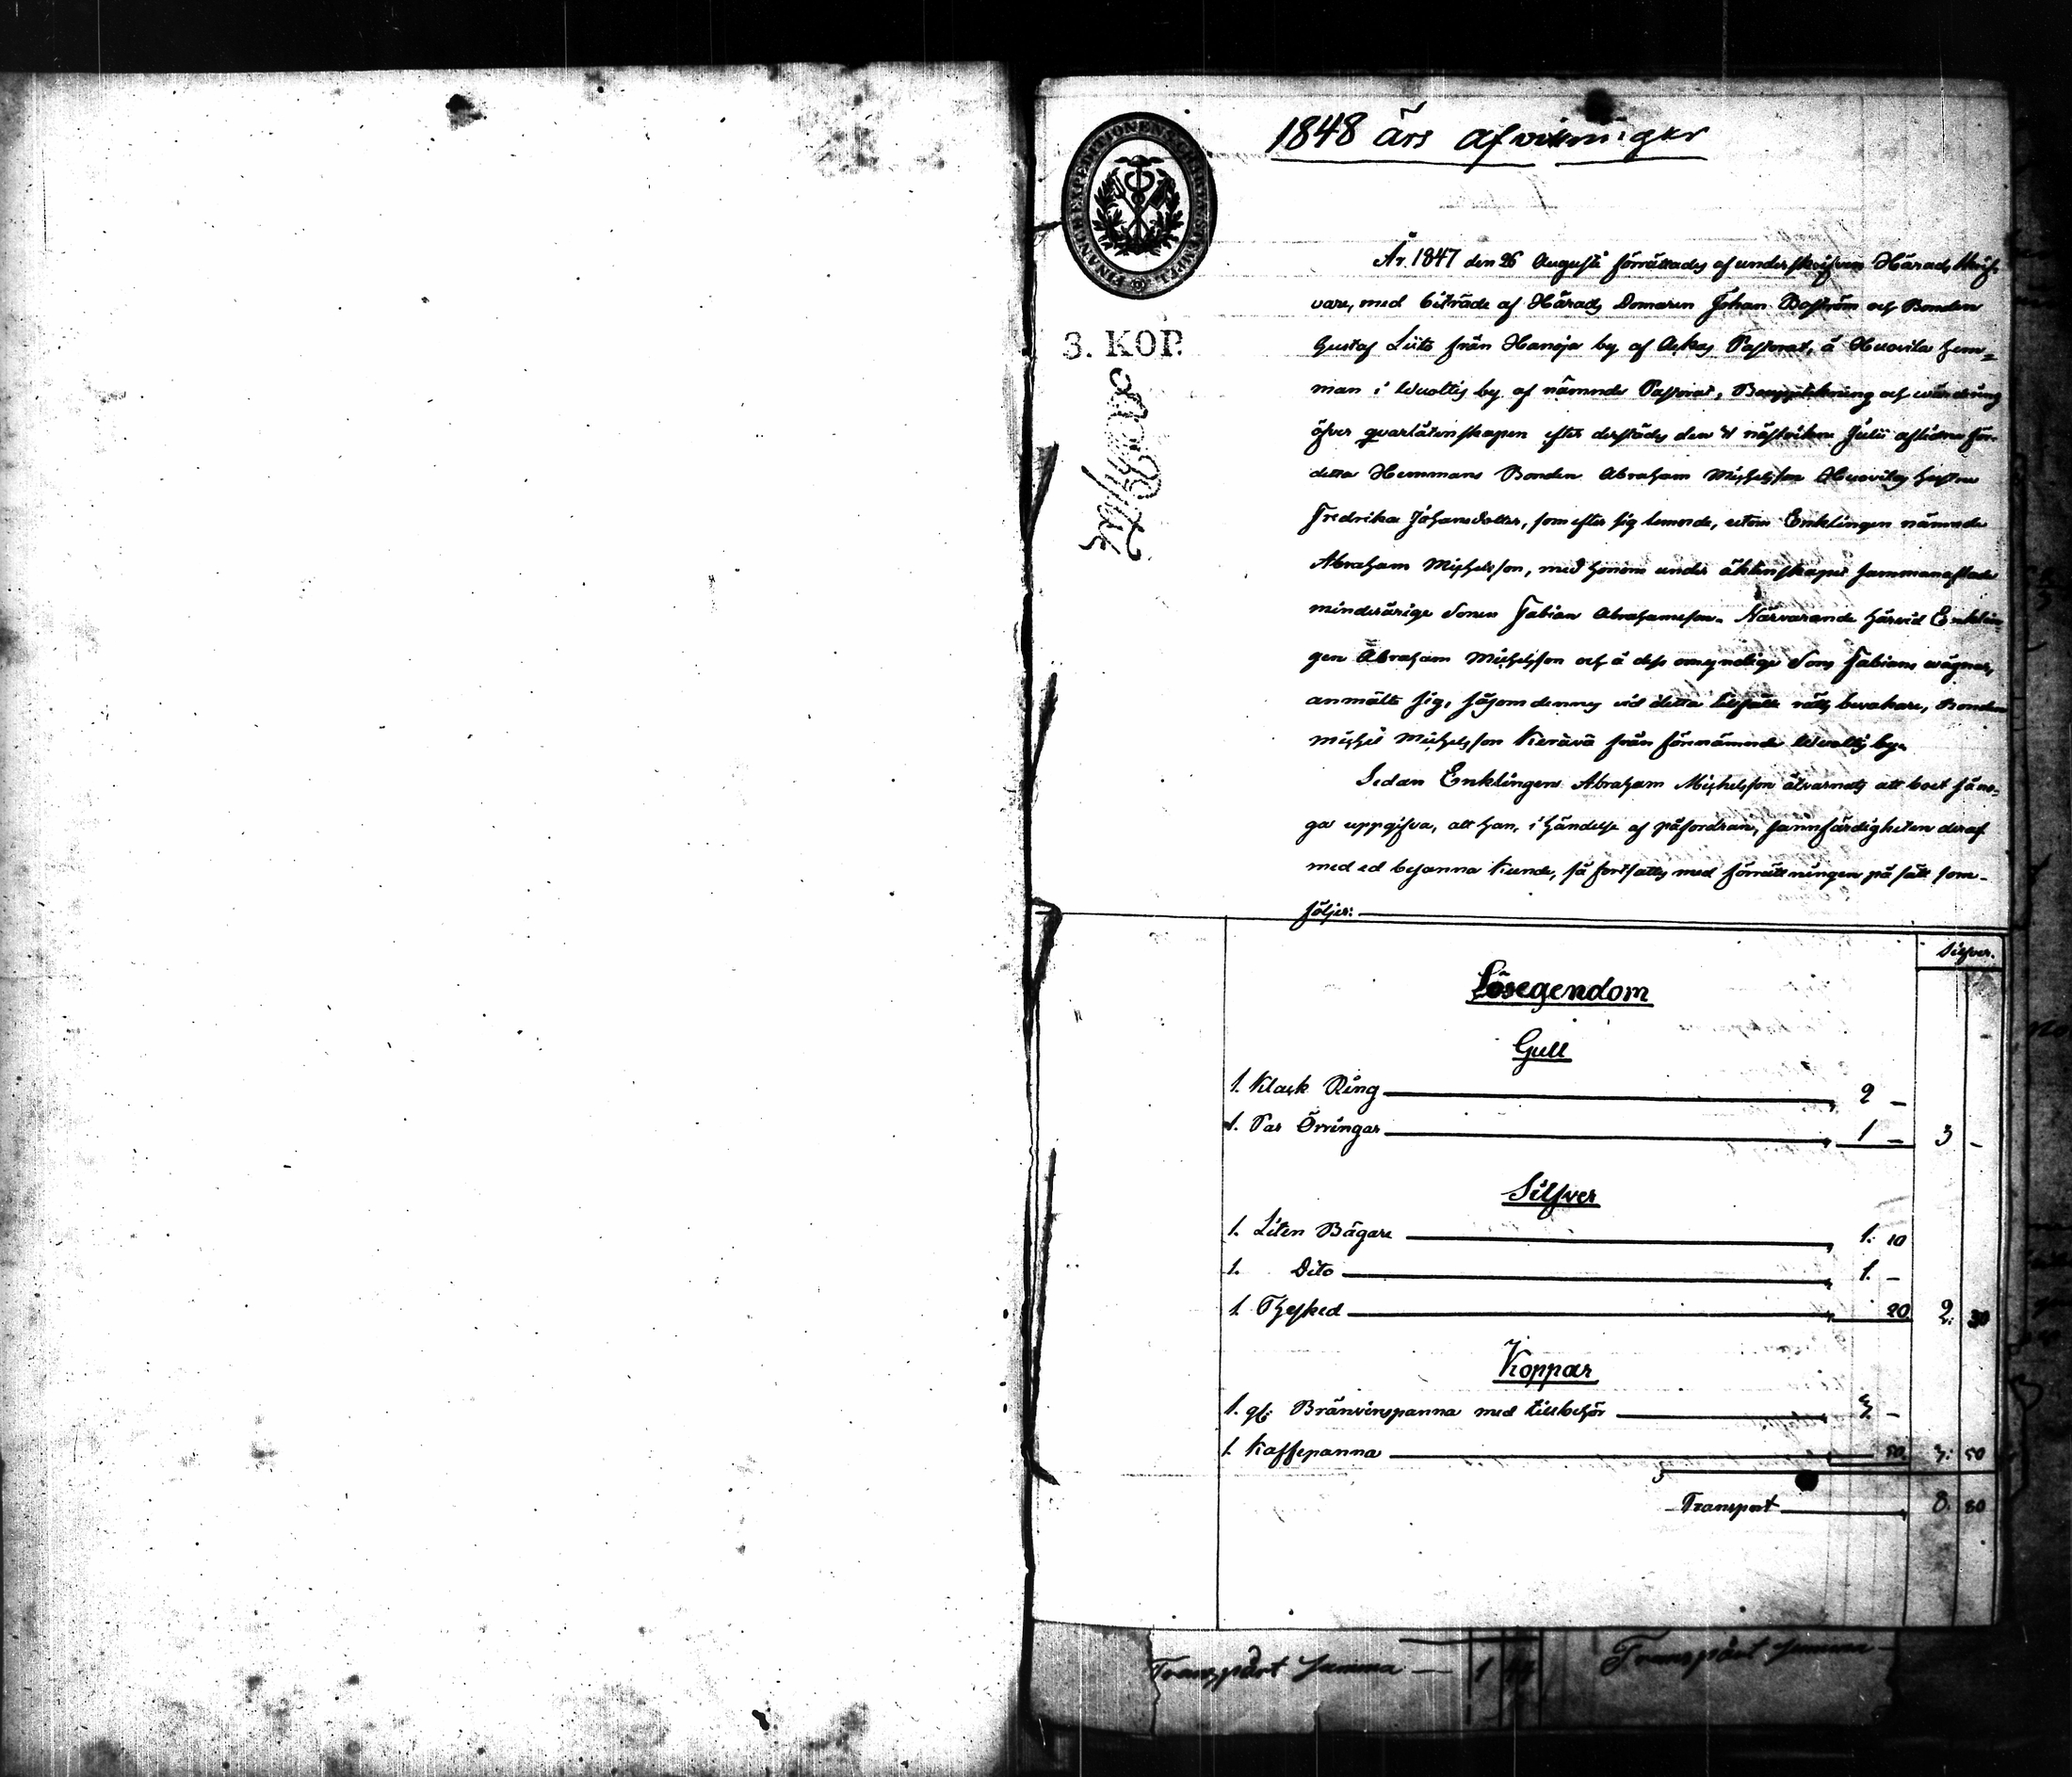 1848 års afvittningar
FINANCE EXPEDITIONENS
3. KOP.
År 1847 den 26 Augusti förrättades af underskrifven Härads Skrif-
vare, med biträde af Härads Domaren Johan Boström och Bonden
Gustaf Liito från Hanoja by af Askas Pastorat, å Huovila Hem-
man i Wuoltis by af nämnde Pastorat, Bouppteckning och wärdering
öfver qvarlåtenskapen efter derstädes den näst­vikne Julii aflidne för-
detta Hemmans Bonden Abraham Michelsson Huovilas hustru
Fredrika Johansdotter, som efter sig lemnade, utom Enklingen nämnde
Abraham Michelsson, med honom under äktenskapet sammanaflade
minderårige Sonen Fabian Abrahamsson. Närvarande härvid Enklin-
gen Abraham Michelsson och å dess omyndige Sons Fabians wägnar,
anmälte sig, såsom dennes vid detta tillfälle rätts bevakare, Bonden
Michel Michelsson Kierävä från förenämnde Wuoltis by.
Sedan Enklingen Abraham Michelsson åtvarnats att boet sån-
ga uppgifva, att han, i händelse af påfordran, sannfärdigheten deraf
med ed besanna kunde, så fortsattes med förrättningen på sätt som
följer:
Silfver.
Lösegendom
Gull
1. Klack Ring 2 –
1. Par Örringar 1 – 3 –
Silfver
1. Liten Bägare 1. 10
1. Dito 1. –
1. Thesked 20. 2. 30
Koppar
1. gl: Bränvinspanna med tillbehör 3. –
1. Kaffepanna 50. 3. 50
Transport 8. 80
Transport Summa — 1 Transport Summa —